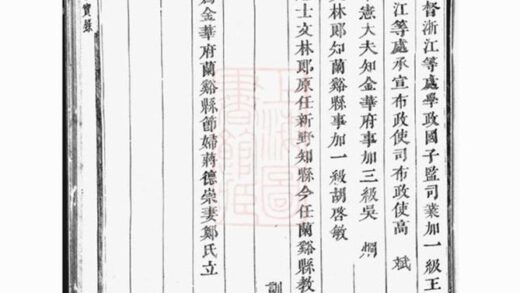 督浙江等處學政國子監司業加一級王
江等處承宣布政使司布政使高斌
憲大夫知金華府事加三級吳
林郎知蘭谿縣事加一級胡啓敏
士文林郎原任新野知縣今任蘭谿縣教
訓
為金華府蘭谿縣節婦蔣德崇妻鄭氏立
實錄